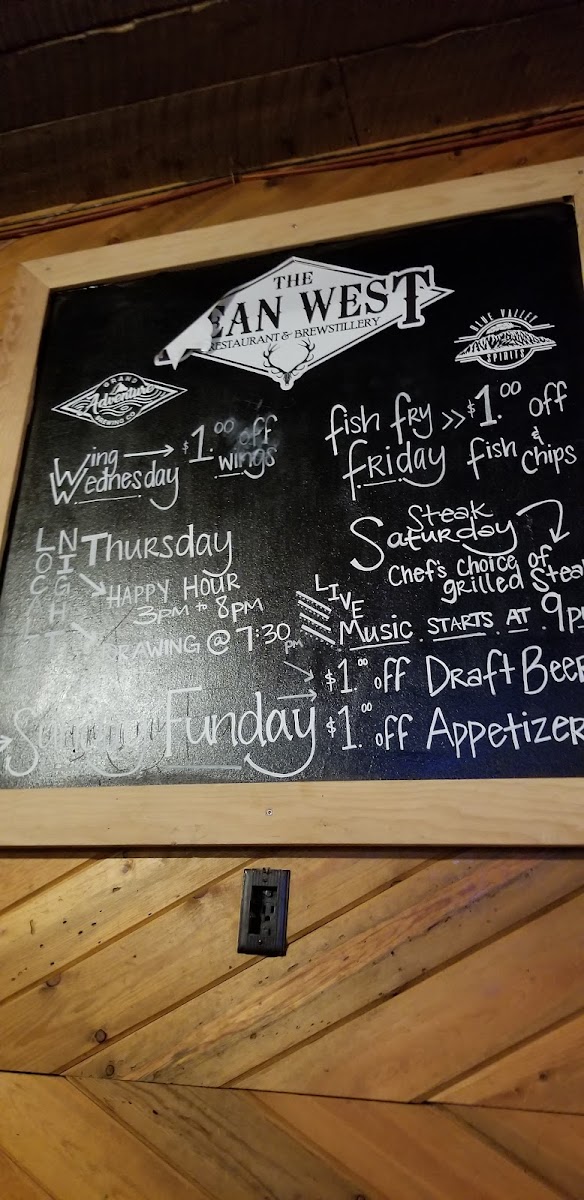 THE
EAN WEST
RESTAURANT & BREWSTILLERY
GRAND
Adventure
BREWING CO
VALLEY
SPIRITS
Wing Wednesday → $1.00 off wings
fish fry >> $1.00 off
friday fish & chips
Steak
Saturday
Chef's choice of
grilled Steak
LOCL NIGHT
Thursday
HAPPY HOUR
3pm to 8pm
RAWING @ 7:30 pm
LIVE
Music STARTS AT 9p
Sunday Funday
$1.00 off Draft Beer
$1.00 off Appetizer